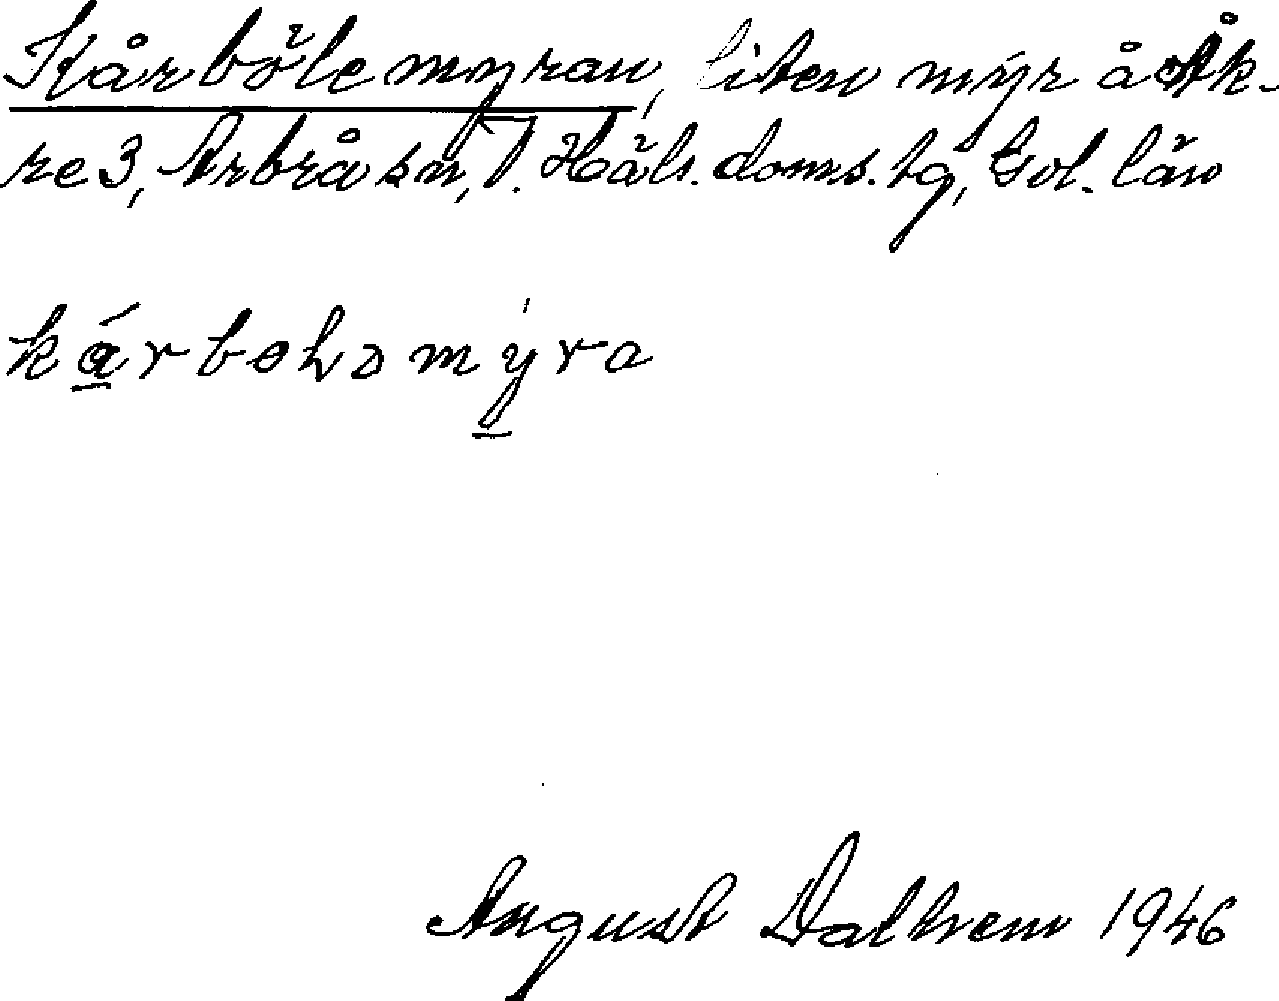 Kårbölemyran, liten myr å Åk-
re 3, Arbrå sn, V. Häls. doms. hg, Gvl. län
kårbolɔmýra
August Dalhem 1946